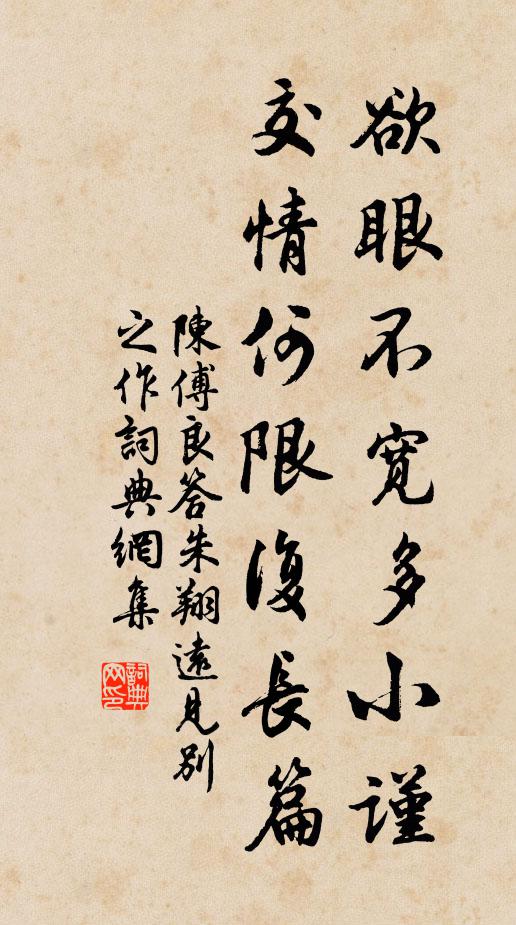 欲眠不寬多小謹
交情何限復長篇
陳傅良答朱翔遠見別
之作詞典網集
詞典網印